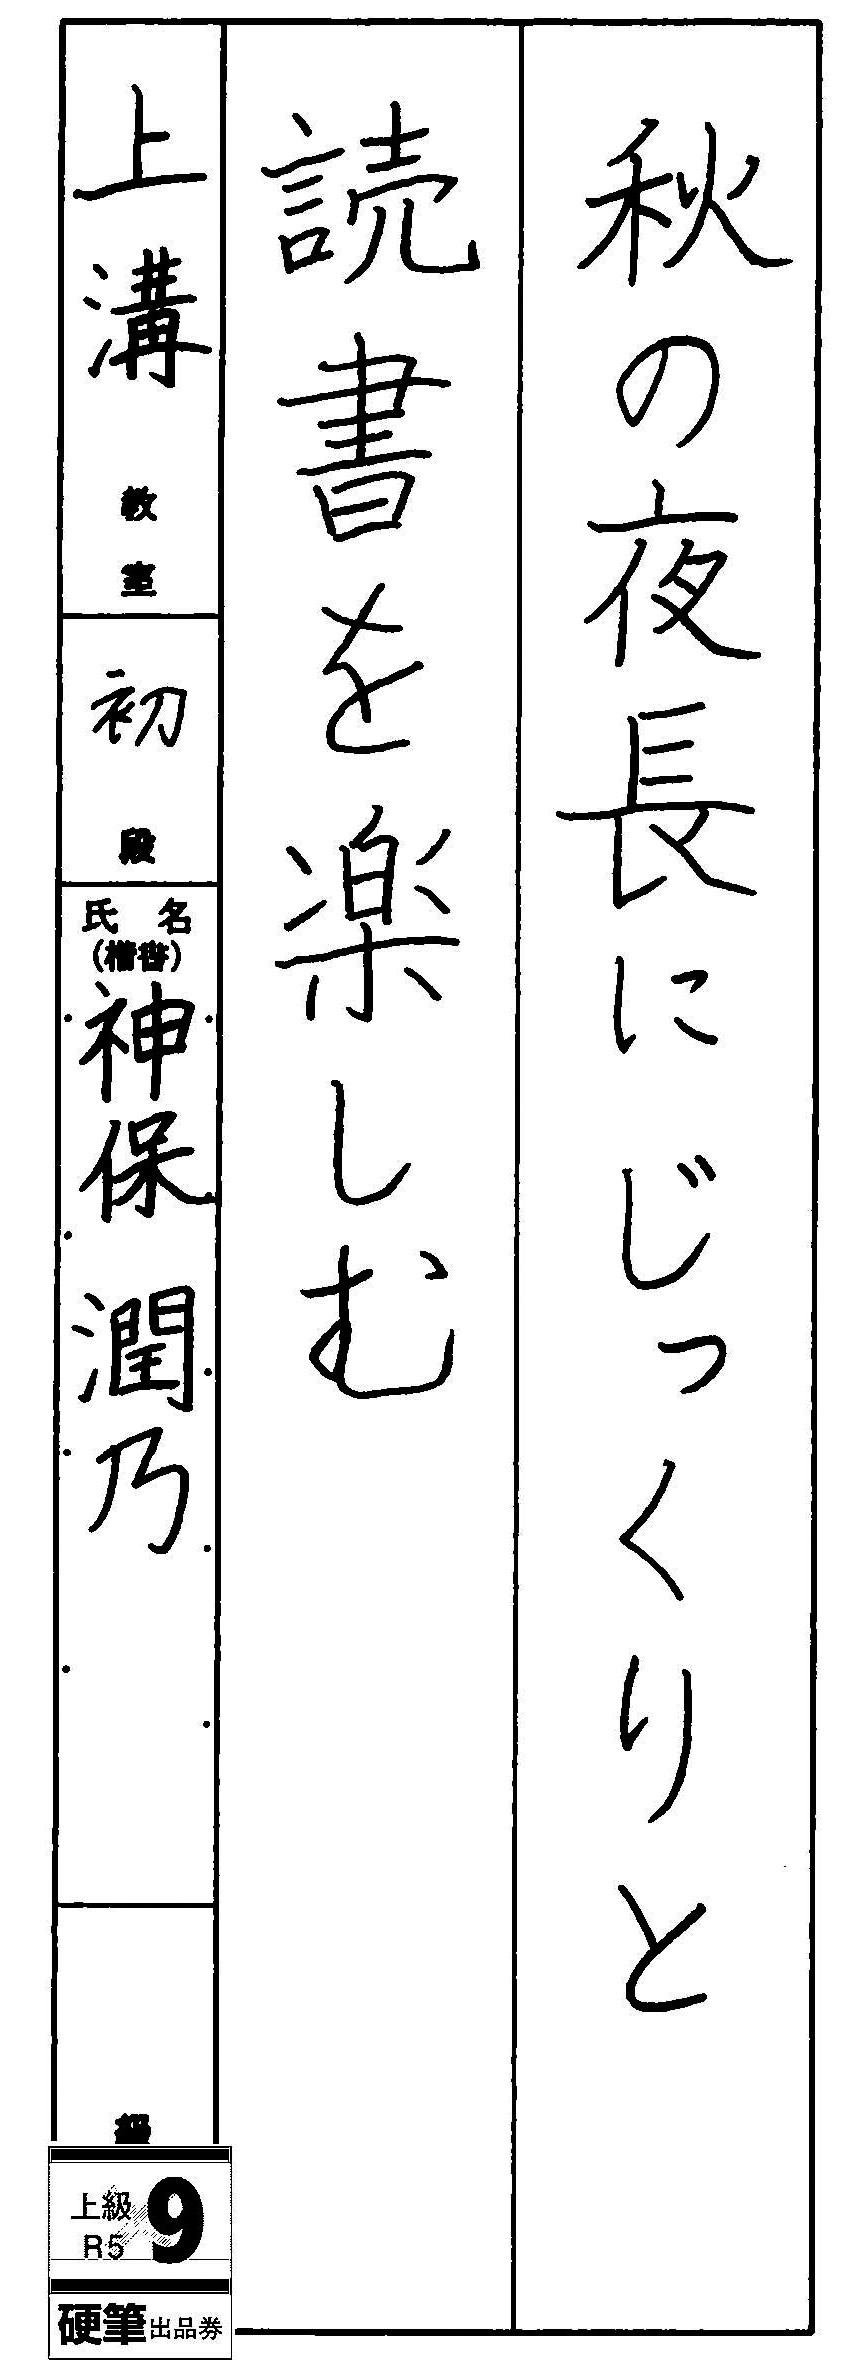 秋の夜長にじっくりと
読書を楽しむ
上溝教室
初段
氏名
(楷書)
神保潤乃
級
上級
R5
9
硬筆出品券